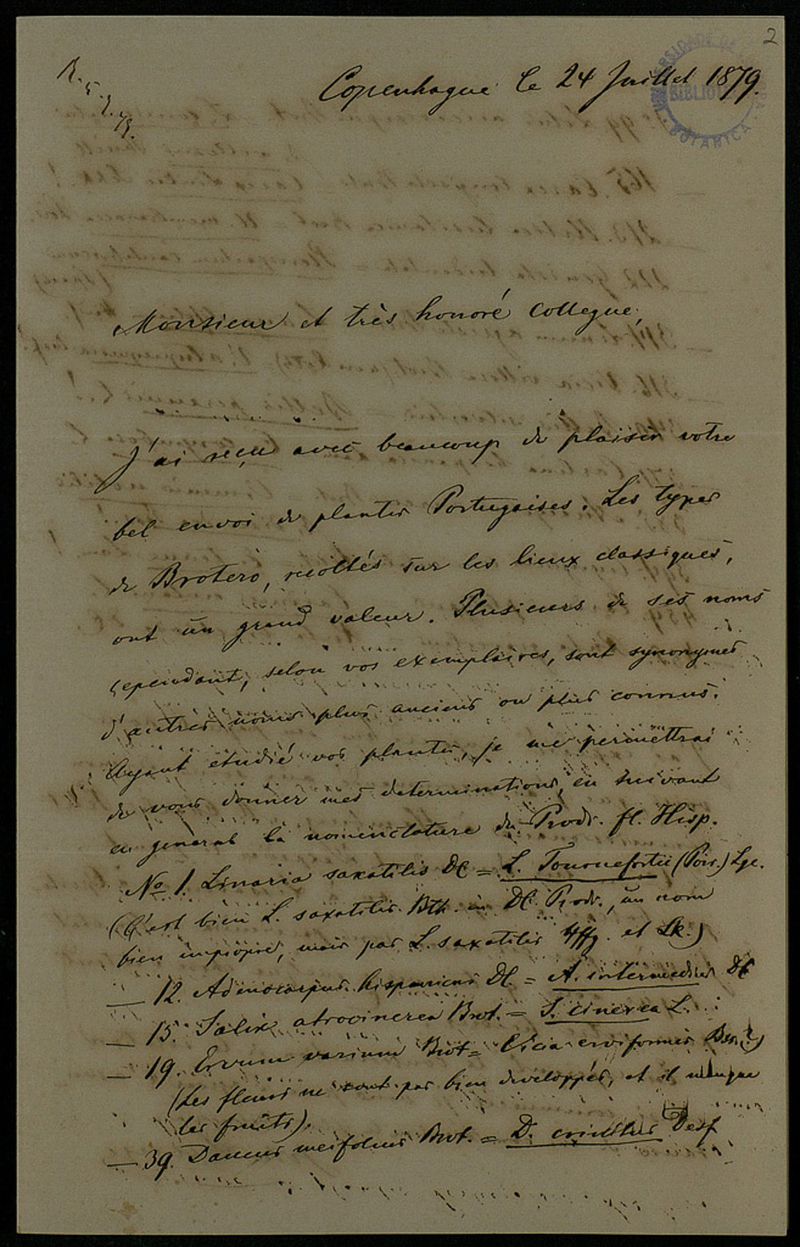 2
R. 5. 9. 79.
Copenhague le 24 Juillet 1879.
BIBLIOTECA BOTANICA
Monsieur et très honoré Collegue,
J'ai reçu avec beaucoup de plaisir votre
bel envoi de plantes Portugaises. Les types
de Brotero, récoltés sur les lieux classiques,
ont un grand valeur. Plusieurs de ses noms
cependant, selon vos exemplaires, sont synonymes
d'autres noms plus anciens ou plus connus.
Ayant étudié vos plantes, je me permettrai
de vous donner mes determinations, en suivant
en general la nomenclature du Prodr. fl. Hisp.
No 1. Linaria saxatilis DC = L. Tournefortii (Poir.) Lge.
(C'est bien L. saxatilis Bth. in DC Prodr., un nom
bien impropre, mais pas L. saxatilis Hffg. et Lk.)
— 12. Adenocarpus hispanicus DC. = A. intermedius DC
— 15. Salix atrocinerea Brot. = S. cinerea L.
— 19. Ervum varium Brot = Vicia erviformis
(Les fleurs ne sont pas bien developpés, et il manque
les fruits).
— 39. Daucus meifolius Brot. = D. crinitus Desf